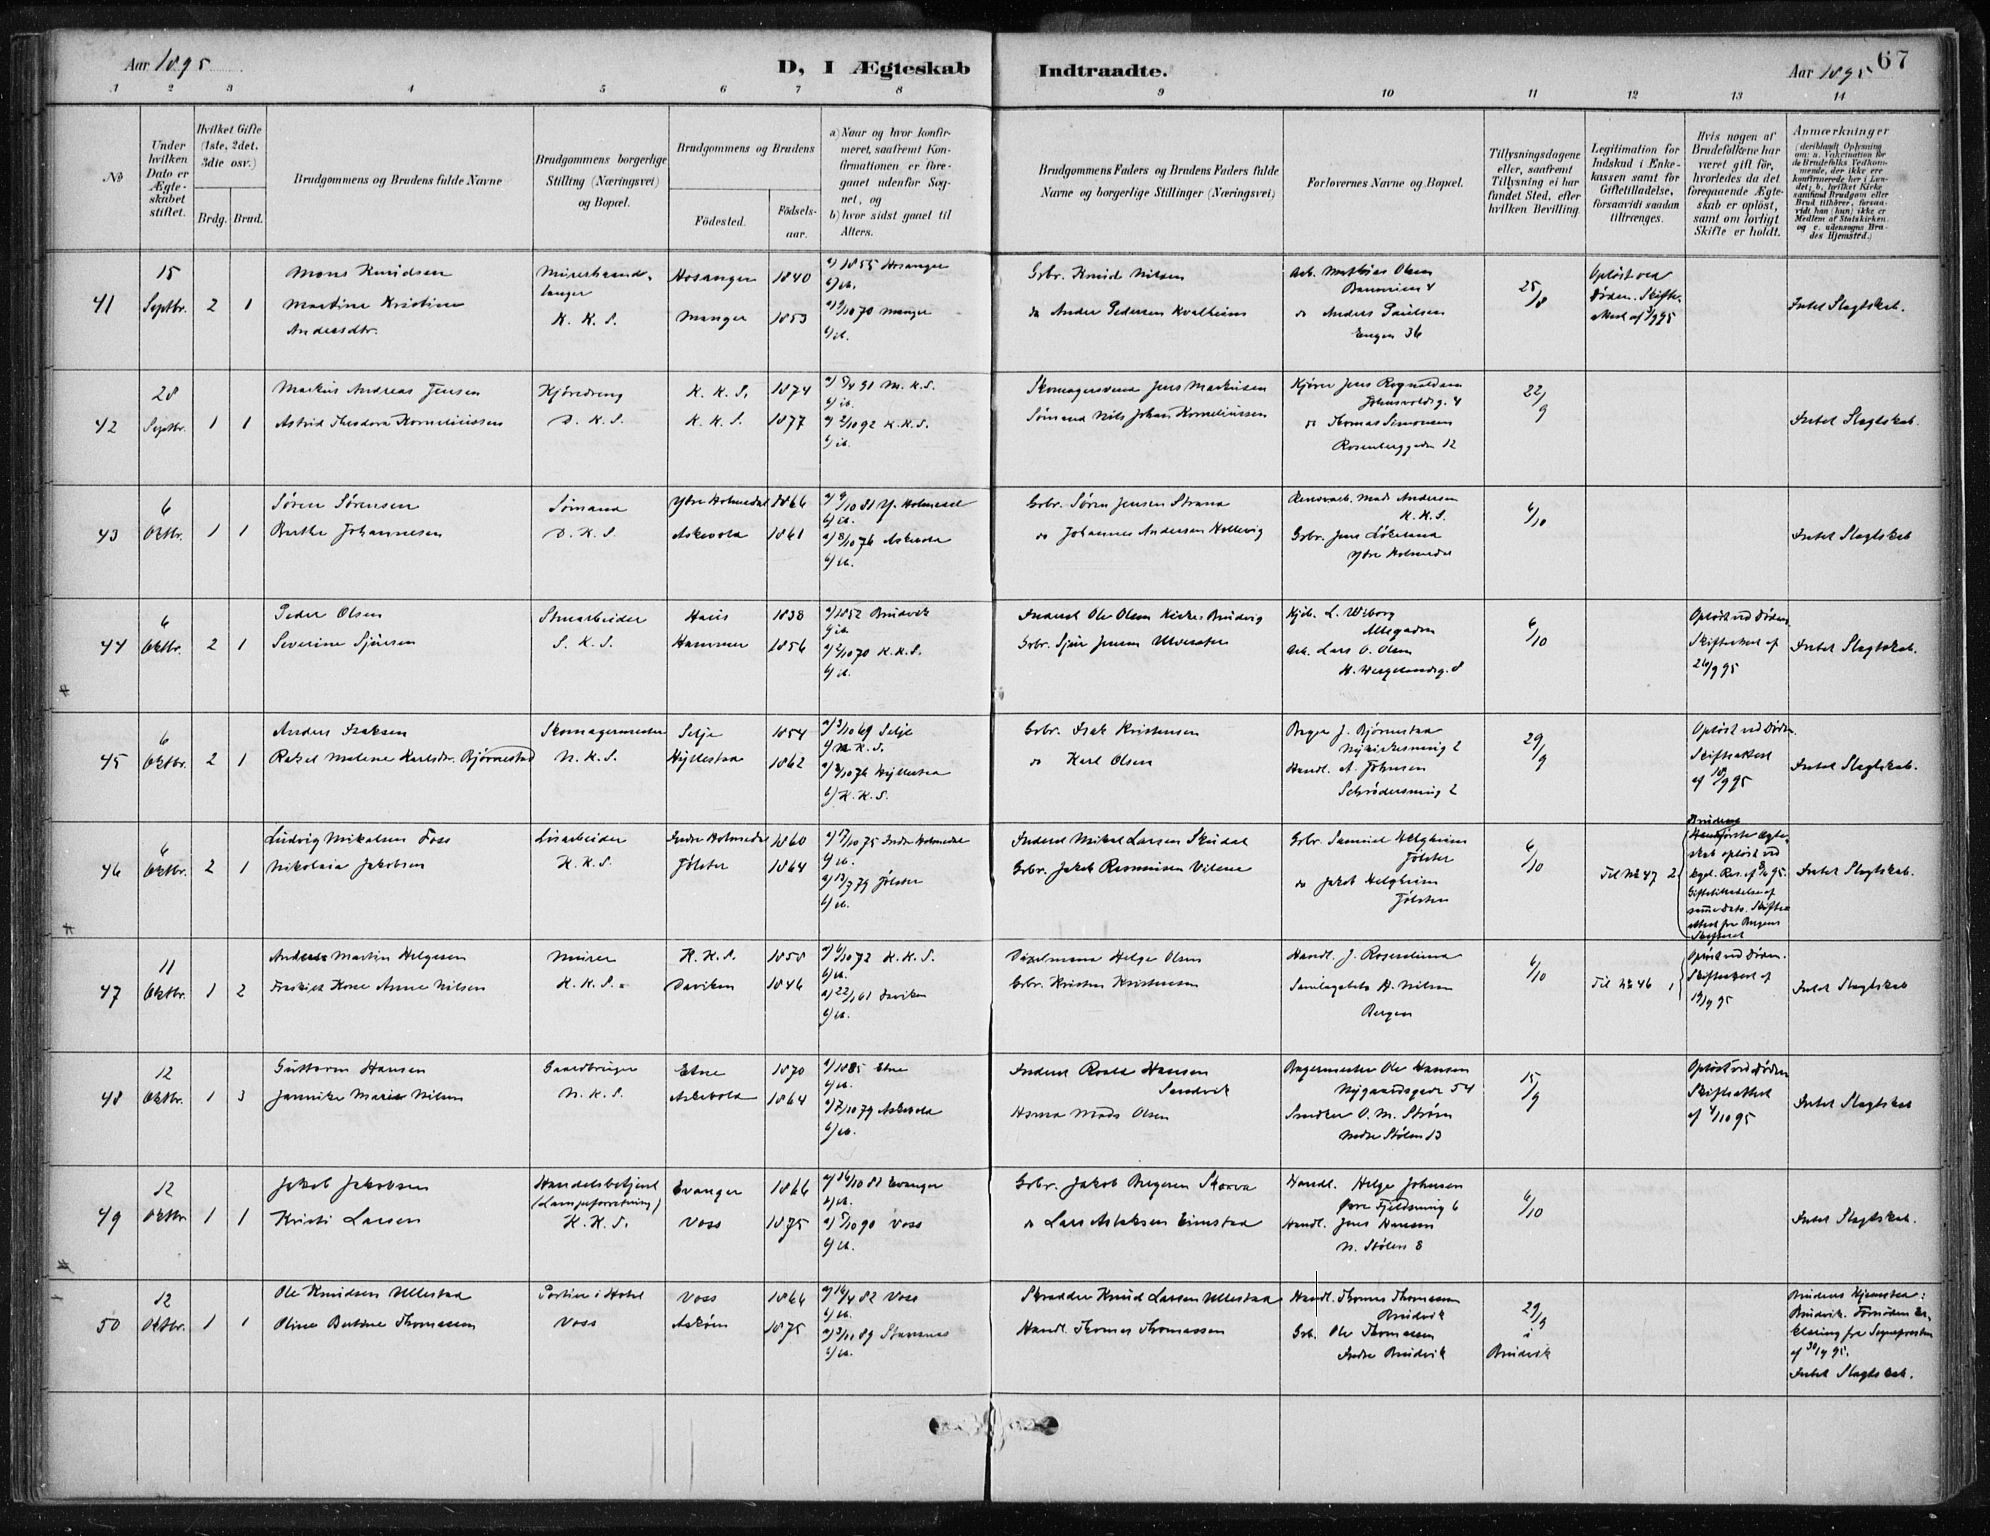 Aar 1895
D, I Ægteskab
Indtraadte.
Aar 1895
67
1 2 3 4 5 6 7 8 9 10 11 12 13 14
No
Under hvilken Dato er Ægteskabet stiftet.
Hvilket Gifte (1ste, 2det, 3die osv.)
Brdg. Brud.
Brudgommens og Brudens fulde Navne
Brudgommens borgerlige Stilling (Næringsvei) og Bopæl.
Brudgommens og Brudens
Födested.
Födsels-aar.
a) Naar og hvor konfirmeret, saafremt Konfirmationen er foregaaet udenfor Sognet, og
b) hvor sidst gaaet til Alters.
Brudgommens Faders og Brudens Faders fulde Navne og borgerlige Stillinger (Næringsvei)
Forlovernes Navne og Bopæl.
Tillysningsdagene eller, saafremt Tillysning ei har fundet Sted, efter hvilken Bevilling.
Legitimation for Indskud i Enkekassen samt for Giftetilladelse, forsaavidt saadan tiltrænges.
Hvis nogen af Brudefolkene har været gift för, hvorledes da det foregaaende Ægteskab er oplöst, samt om lovligt Skifte er holdt.
Anmærkninger
(deriblandt Oplysning om: a. Vakcination for de Brudefolks Vedkommende, der ikke ere konfirmerede her i Landet; b. hvilket Kirkesamfund Brudgom eller Brud tilhörer, forsaavidt han (hun) ikke er Medlem af Statskirken, og c. udensogns Brudes Hjemsted.)
41
15 Septbr.
2 1
Mons Knudsen
Martine Kristine Andersdtr.
Murerhaandlanger
K. K. S.
Hosanger 1840
Manger 1853
a) 1855 Hosanger
b) ib.
a) 9/10 70 Manger
b) ib.
Grbr. Knud Nilsen
do Anders Pedersen Kvalheim
Arb. Mathias Olsen
do Anders Paulsen
Engen 36
25/8
Opløst ved Døden. Skifteattest af 3/9 95
Intet Slagtskab.
42
28 Septbr.
1 1
Markus Andreas Jensen
Astrid Theodora Korneliussen
Kjøredreng
D. K. S.
K. K. S. 1874
K. K. S. 1877
a) 5/4 91 M. K. S.
b) ib.
a) 2/10 92 K. K. S.
b) ib.
Skomagersvend Jens Markusen
Sømand Nils Johan Korneliussen
Kjører Jens Rognaldsen
do Thomas Simonsen
Rosenberggaden 12
22/9
Intet Slagtskab.
43
6 Oktbr.
1 1
Søren Sørensen
Berthe Johannesen
Sømand
D. K. S.
Ytre Holmedal 1866
Askevold 1861
a) 9/10 81 Y. Holmedal
b) ib.
a) 8/10 76 Askevold
b) ib.
Grbr. Søren Jensen Strand
do Johannes Andersen Hollevig
Mads Andersen
K. K. S.
Grbr. Jens Løkeland
Ytre Holmedal
6/10
Intet Slagtskab
44
6 Oktbr.
2 1
Peder Olsen
Severine Sjursen
Stuearbeider
S. K. S.
Haus 1838
Hammer 1856
a) 1852 Bruvik
b) ib.
a) 2/10 70 K. K. S.
b) ib.
Inderst Ole Olsen Kirke Bruvig
Grbr. Sjur Jensen
Kjøb. L. Wiborg
Allegaden
Arb. Lars O. Olsen
H. Wergelandsg. 8
6/10
Opløst ved Døden
Skifteattest af 26/9 95
Intet Slagtskab.
45
6 Oktbr.
2 1
Anders Isaksen
Rakel Malene Karlsdtr. Bjørnestad
Skomagermester
N. K. S.
Selje 1854
Hyllestad 1862
a) 3/10 69 Selje
b) N. K. S.
a) 8/10 76 Hyllestad
b) K. K. S.
Grbr. Isak Kristensen
do Karl Olsen
Bager J. Bjørnestad
Nykirkesmug 2
Handl. A. Johnsen
Schrødersmug 2
29/9
Opløst ved Døden.
Skifteattest af 18/9 95
Intet Slagtskab.
46
6 Oktbr.
2 1
Ludvig Mikalsen Foss
Nikolaia Jakobsen
Løsarbeider
K. K. S.
Indre Holmedal 1860
Jølster 1864
a) 17/10 75 Indre Holmedal
b) ib.
a) 13/7 79 Jølster
b) ib.
Inderst Mikal Larsen Skudal
Grbr. Jakob Rasmusen
Grbr. Samuel Helgheim
Jølster
do Jakob Helgheim
Jølster
6/10
Til No 47 2
første Ægteskab opløst ved kgl. Res. af 95.
Giftetilladelse af samme Dato. Skifteattest fra Bergens Skifteret
Intet Slagtskab.
47
11 Oktbr.
1 2
Anders Martin Helgesen
Fraskilt Kone Anne Nilsen
Murer
K. K. S.
K. K. S. 1858
Daviken 1846
a) 6/10 72 K. K. S.
b) ib.
a) 22/ 61 Daviken
b) ib.
Helge Olsen
Grbr. Kristen Kristensen
Handl. J. Rosenlund
H. Nilsen
Bergen
6/10
Til No 46 1
Opløst ved Døden.
Skifteattest af 19/9 95
Intet Slagtskab
48
12 Oktbr.
1 3
Guttorm Hansen
Jannike Marie Nilsen
Gaardbruger
N. K. S.
Etne 1870
Askevold 1864
a) 1885 Etne
b) ib.
a) 7/10 79 Askevold
b) ib.
Inderst Roald Hansen
Sandvik
Mads Olsen
Bagermester Ole Hansen
Nygaardsgade 54
Snedker O. M. Strøm
Nedre Stølen 13
15/9
Opløst ved Døden
Skifteattest af 4/10 95
Intet Slagtskab
49
12 Oktbr
1 1
Jakob Jakobsen
Kristi Larsen
Handelsbetjent
(Lampeforretning)
K. K. S.
Evanger 1866
Voss 1875
a) 16/10 81 Evanger
b) ib.
a) 5/10 90 Voss
b) ib.
Grbr. Jakob Skorve
do Lars Aslaksen
Handl. Helge Johnsen
Øvre Fjeldsmug 6
Handl. Jens Hansen
N. Stølen 8
6/10
Intet Slagtskab.
50
12 Oktbr.
1 1
Ole Knudsen Ullestad
Oline Bertine Thomassen
Portier i Hotel
Voss
Voss 1866
Askøen 1875
a) 16/4 82 Voss
b) ib.
a) 3/11 89 Stamnes
b) ib.
Skrædder Knud Larsen Ullestad
Handl. Thomas Thomassen
Handl. Thomas Thomassen
Bruvik
Grb. Ole Thomassen
Indre Bruvik
29/9 i Bruvik
Brudens Hjemsted: Bruvik. Fornøden Erklæring fra Sognepresten af 30/9 95.
Intet Slagtskab.